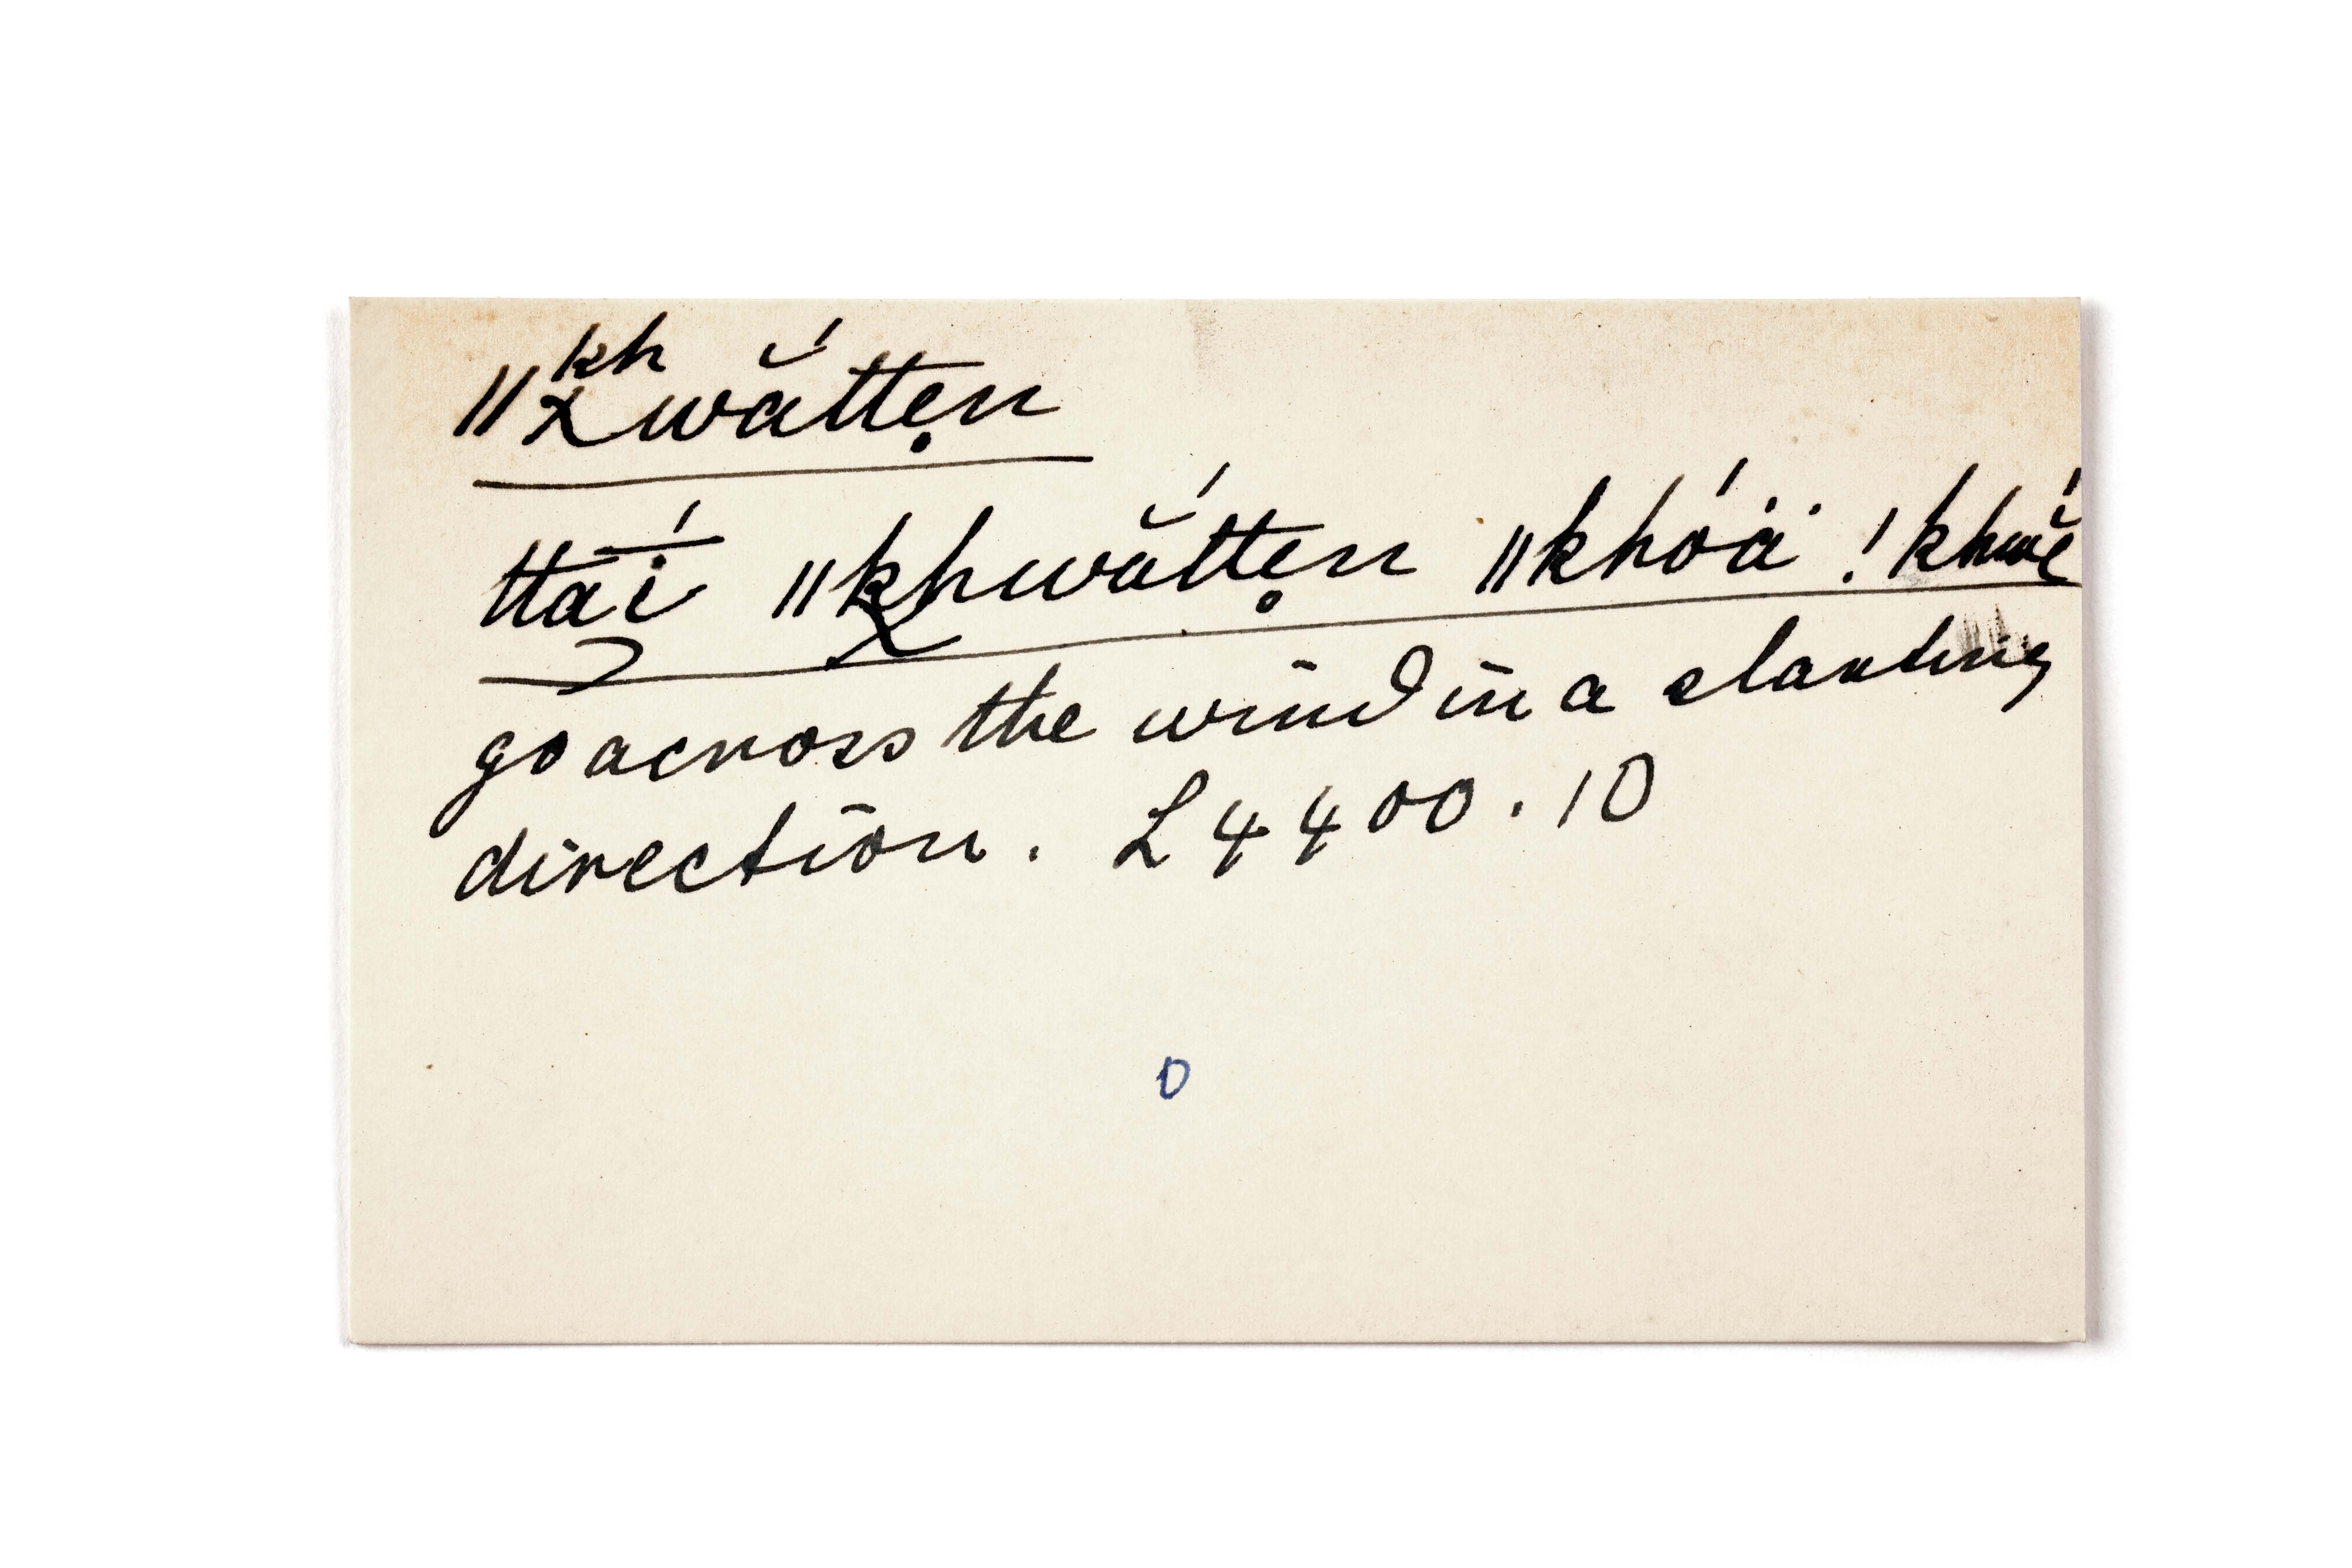 ǁkhwắttẹn
ttā́i ǁkhwắttẹn ǁkhóä̇ !khwĕ́
go across the wind in a slanting
direction. L 4400.10
D